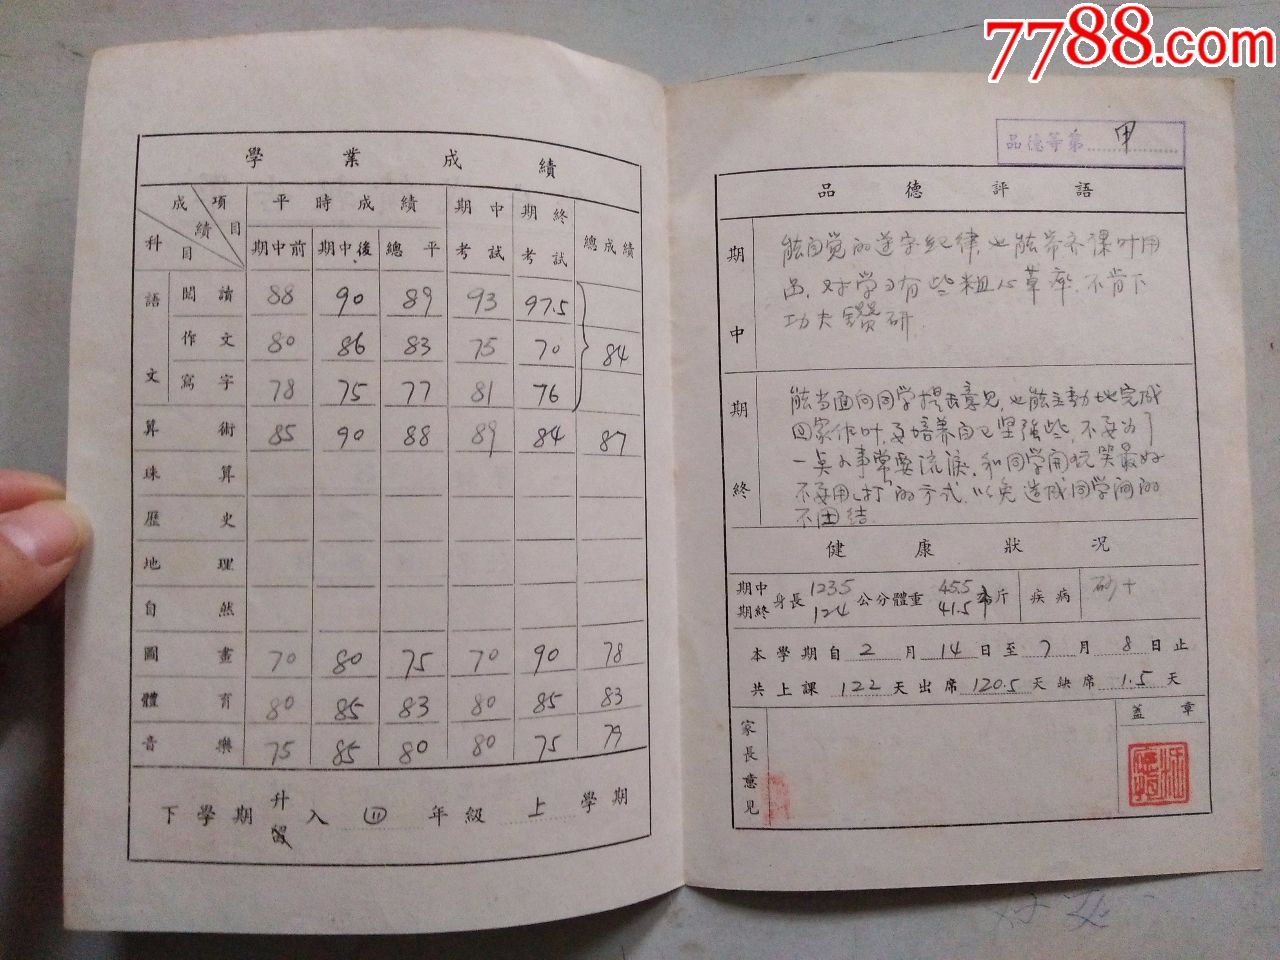 7788.com
學業成績
成績 項目 科目 平時成績 期中考試 期終考試 總成績
期中前 期中後 總平
語文 閱讀 88 90 89 93 97.5
作文 80 86 83 75 70 84
寫字 78 75 77 81 76
算術 85 90 88 89 84 87
珠算
歷史
地理
自然
圖畫 70 80 75 70 90 78
體育 80 85 83 80 85 83
音樂 75 85 80 80 75 79
下學期升留入四年級上學期
品德等第 甲
品德評語
期中
能自觉的遵守纪律,也能带齐课叶用
品,对学习有些粗心草率.不肯下
功夫鑽研.
期終
能当面向同学提出意见,也能主动地完成
回家作叶,要培养自己坚强些,不要为了
一点小事常要流淚.和同学開玩笑最好
不要用"打"的方式,以免造成同学间的
不团结.
健康狀況
期中 身長 123.5 公分 體重 45.5 市斤 疾病 砂+
期終 124 41.5
本學期自2月14日至7月8日止
共上課122天出席120.5天缺席1.5天
家長意見
蓋章